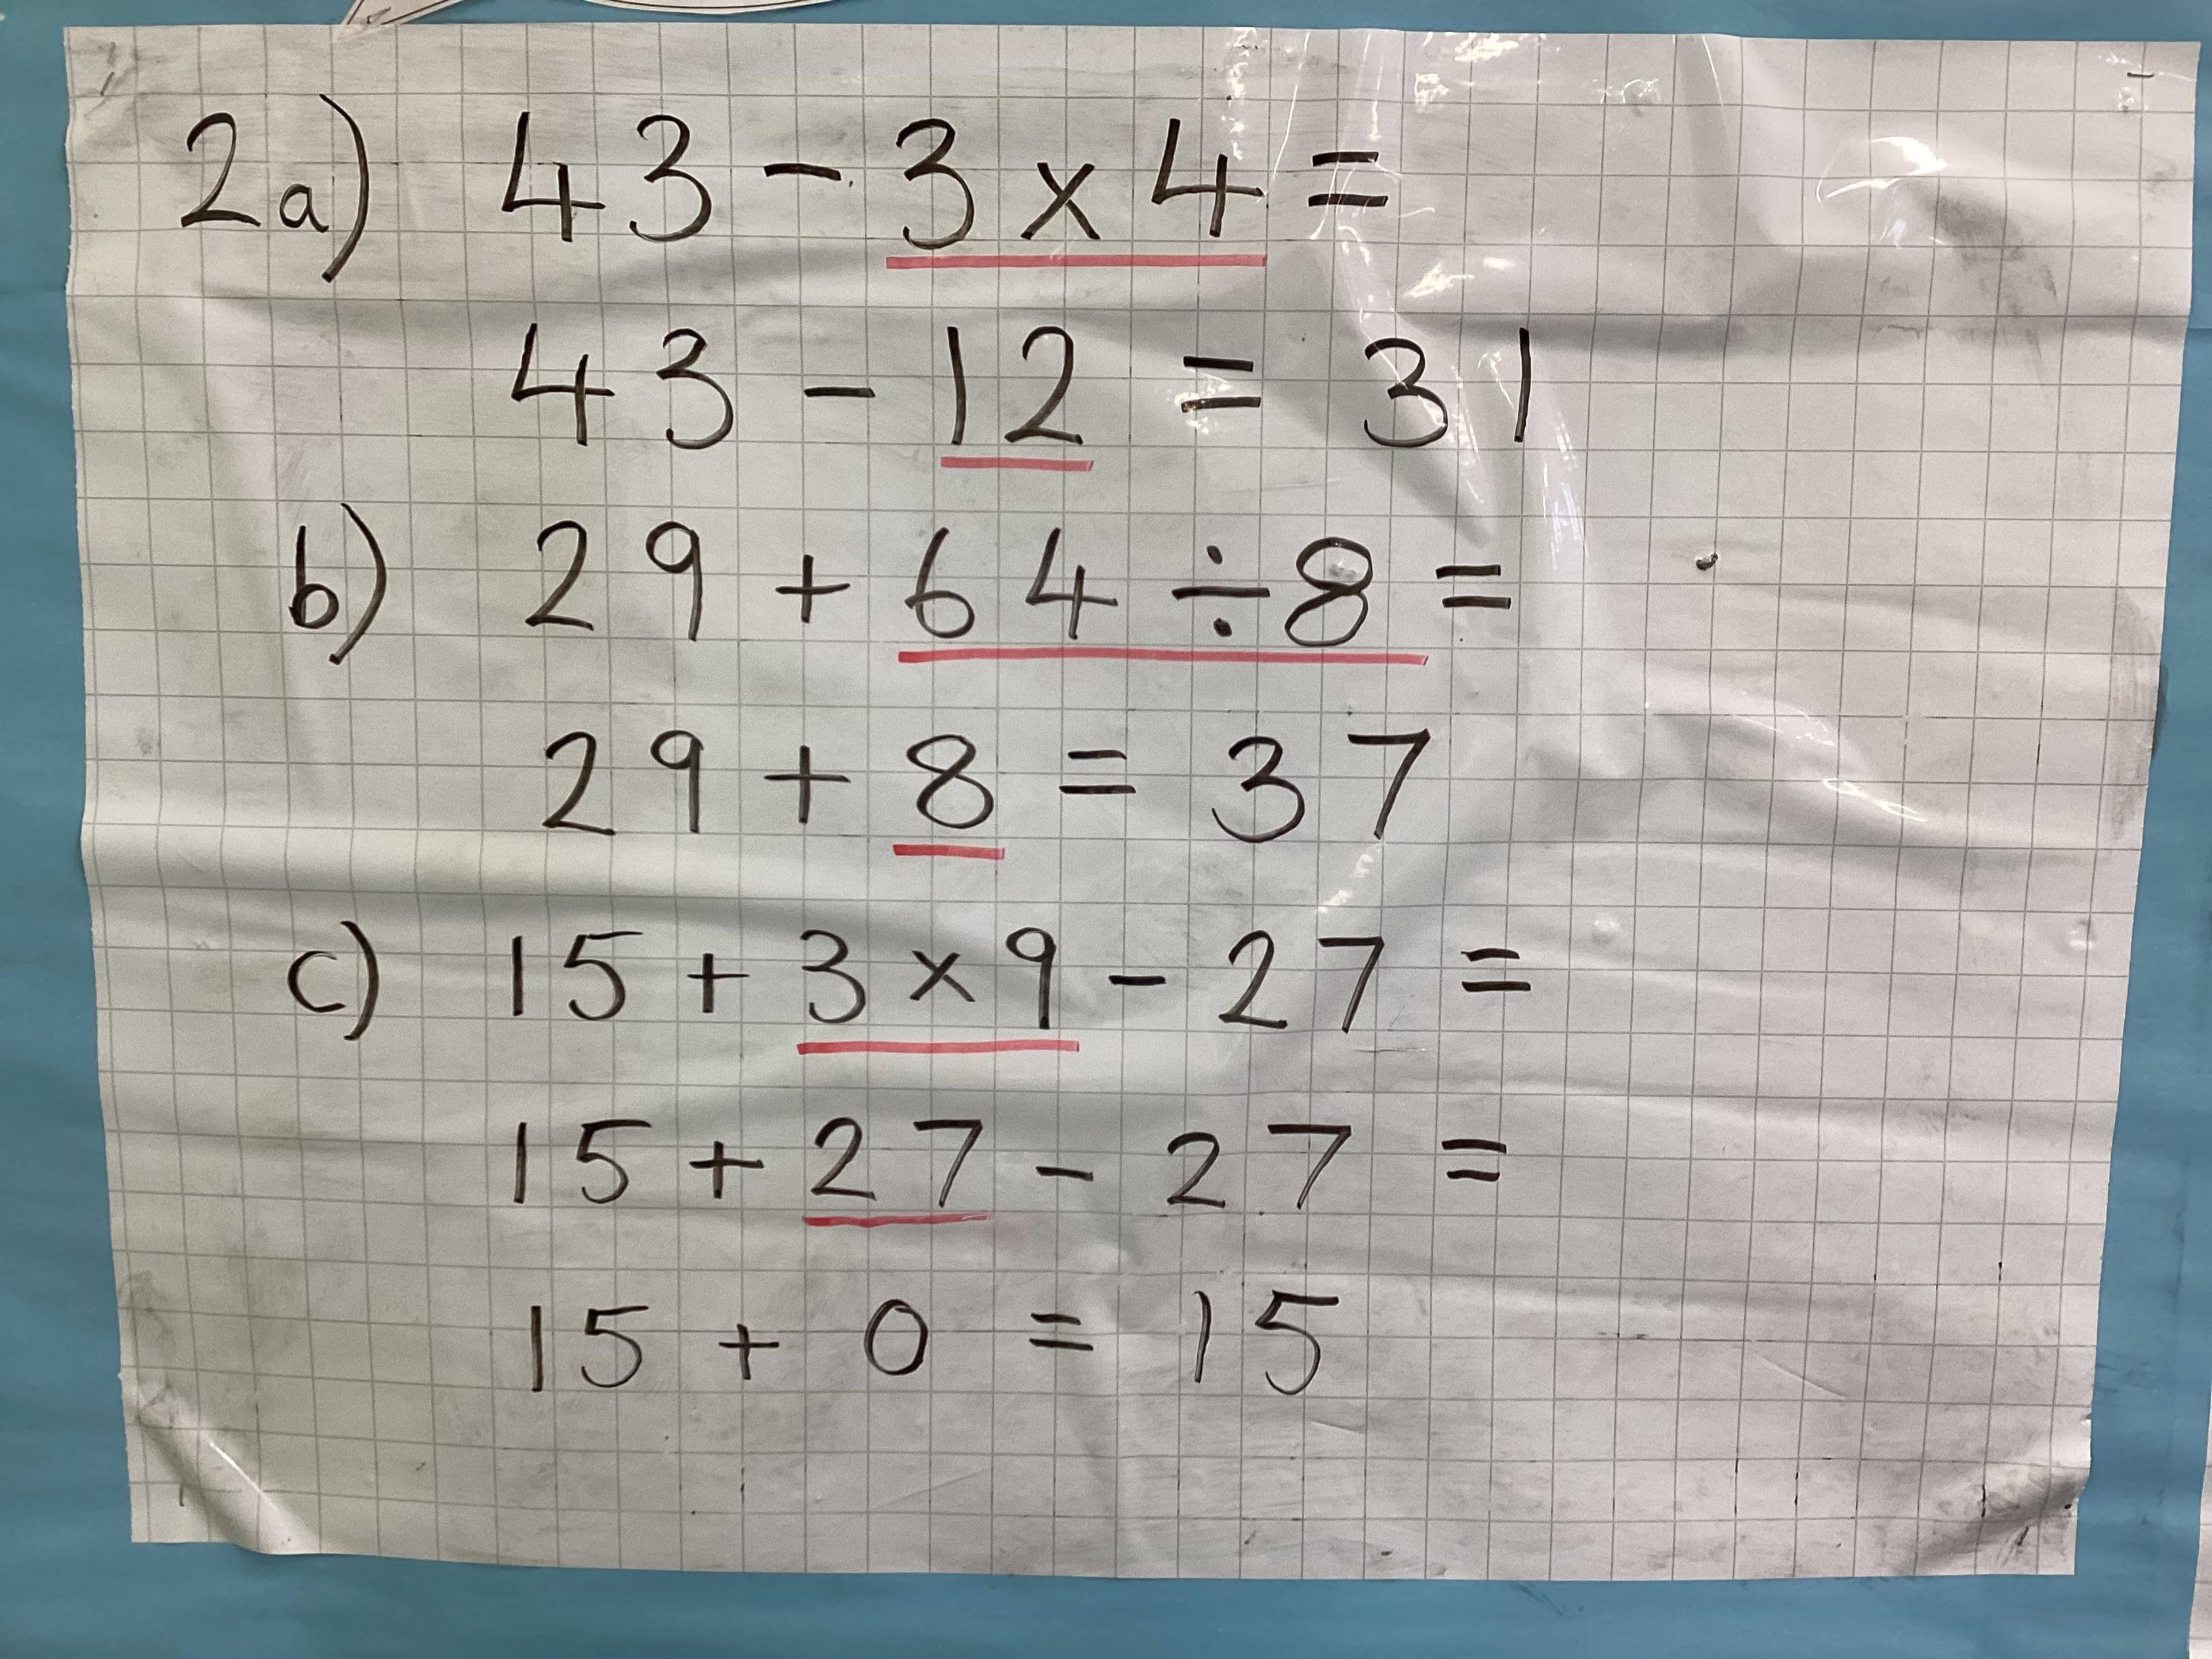 2a) 43 - 3 × 4 =
43 - 12 = 31
b) 29 + 64 ÷ 8 =
29 + 8 = 37
c) 15 + 3 × 9 - 27 =
15 + 27 - 27 =
15 + 0 = 15